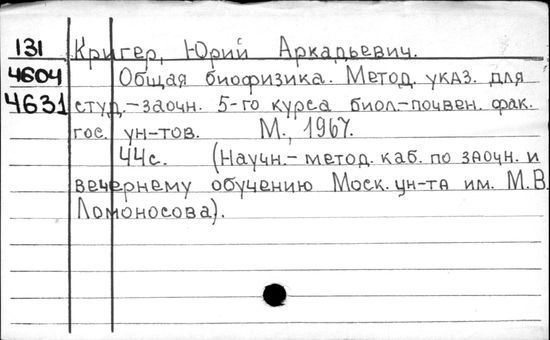 131 Кригер, Юрий Аркадьевич.
4604 Общая биофизика. Метод. указ. для
4631 студ.-заочн. 5-го курса биол.-почвен. фак.
гос. ун-тов. М., 1967.
44с. (Научн.- метод. каб. по заочн. и
вечернему обучению Моск. ун-та им. М.В.
Ломоносова).